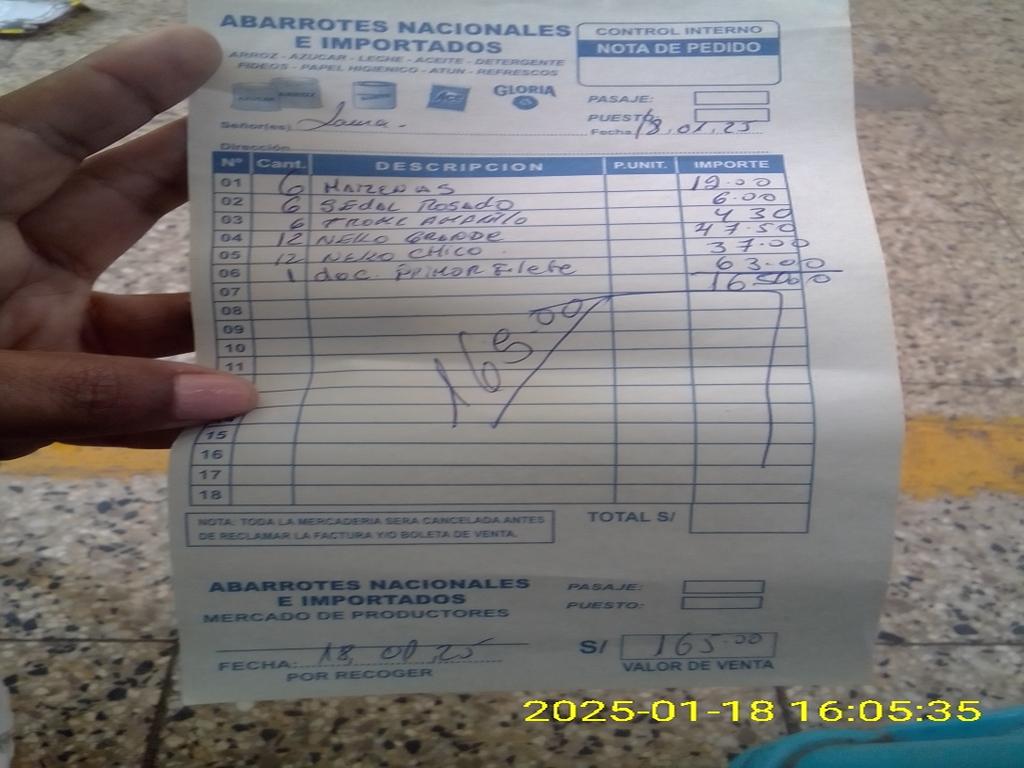 ABARROTES NACIONALES
E IMPORTADOS
ARROZ - AZUCAR - LECHE - ACEITE - DETERGENTE
FIDEOS - PAPEL HIGIENICO - ATUN - REFRESCOS
GLORIA
CONTROL INTERNO
NOTA DE PEDIDO
PASAJE:
PUESTO:
Señor(es)
Fecha: 18,01,25
Dirección
Nº Cant. DESCRIPCION P.UNIT. IMPORTE
01 6 MAIZENAS 19.00
02 6 SEDAL ROSADO 6.00
03 6 AMARILLO 430
04 12 NEKO GRANDE 47.50
05 12 NEKO CHICO. 37.00
06 1 doc. PRIMOR 63.00
07
08
09 165.00
10
11
15
16
17
18
NOTA: TODA LA MERCADERIA SERA CANCELADA ANTES
DE RECLAMAR LA FACTURA Y/O BOLETA DE VENTA.
TOTAL S/
ABARROTES NACIONALES
E IMPORTADOS
MERCADO DE PRODUCTORES
PASAJE:
PUESTO:
FECHA:
POR RECOGER
S/ 165.00
VALOR DE VENTA
2025-01-18 16:05:35